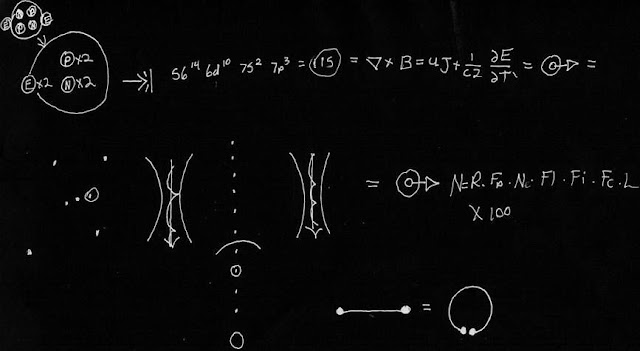 E P N E
N P
P×2
E×2 N×2
56¹⁴ 6d¹⁰ 7s² 7p³ = 115 = ∇ × B = uJ + 1/c2 ∂E/∂T = =
= N=R·Fp·Ne·Fl·Fi·Fc·L
× 100
=